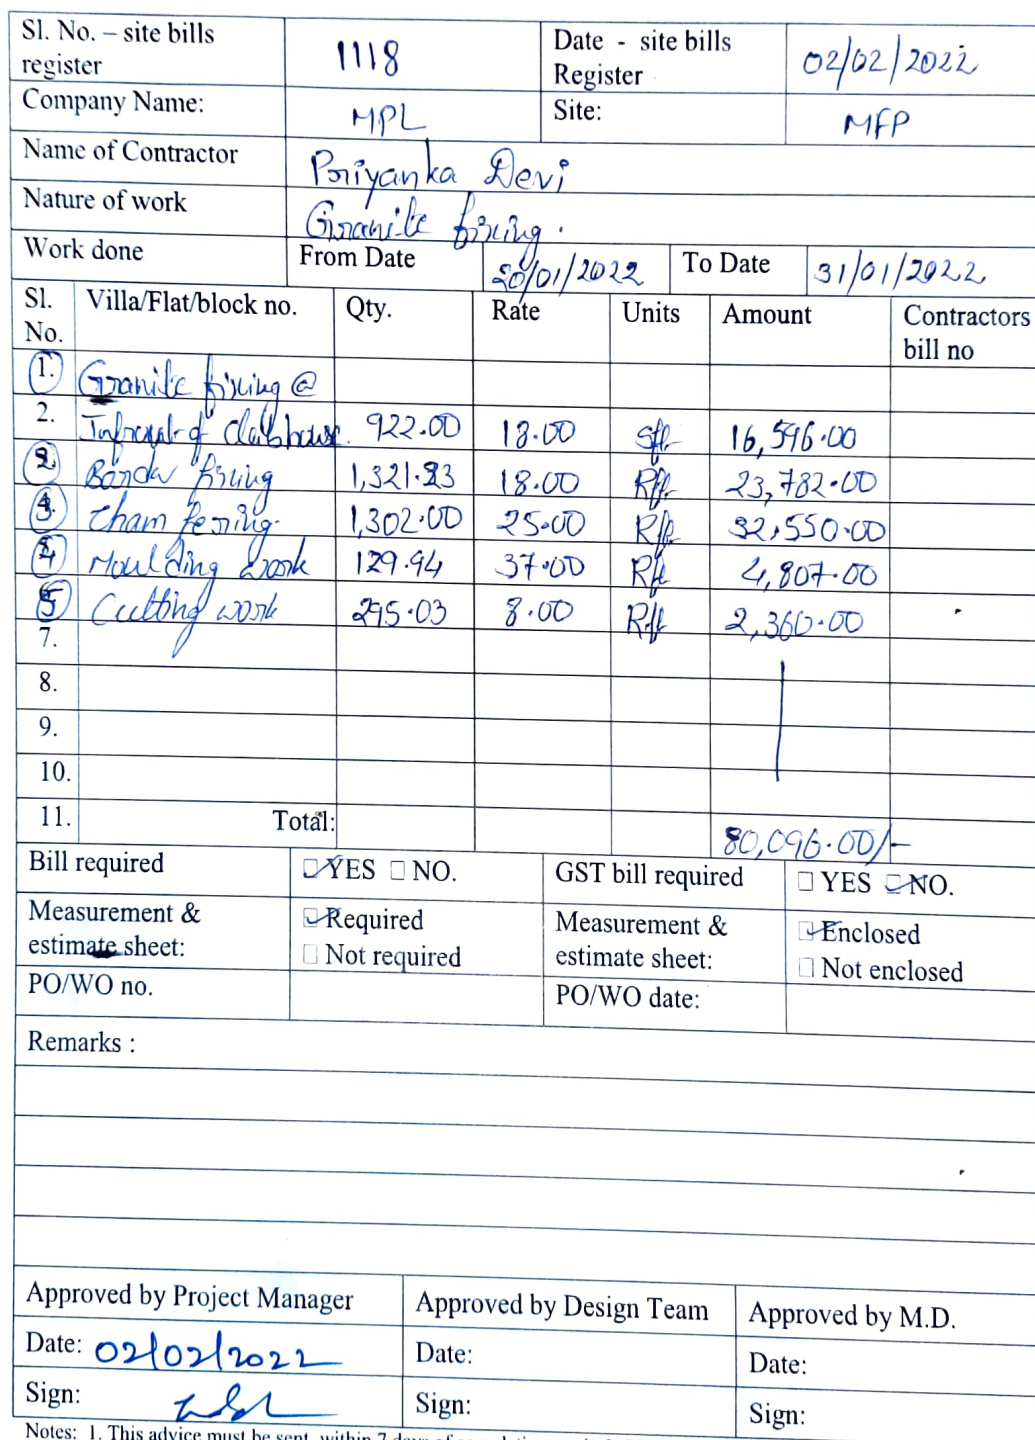 Sl. No. – site bills register 1118 Date - site bills Register 02/02/2022
Company Name: MPL Site: MFP
Name of Contractor Priyanka Devi
Nature of work Granite fixing.
Work done From Date 20/01/2022 To Date 31/01/2022
Sl. No. Villa/Flat/block no. Qty. Rate Units Amount Contractors bill no
1. Granite fixing @
2. of clubhouse. 922.00 18.00 Sft. 16,596.00
2 fixing 1,321.23 18.00 Rft. 23,782.00
3 Cham 1,302.00 25.00 Rft 32,550.00
4 Moulding work 129.94 37.00 Rft 4,807.00
5 Cutting work 295.03 8.00 Rft 2,360.00
7.
8.
9.
10.
11. Total: 80,096.00/-
Bill required YES NO. GST bill required YES NO.
Measurement & estimate sheet: Required Not required Measurement & estimate sheet: Enclosed Not enclosed
PO/WO no. PO/WO date:
Remarks :
Approved by Project Manager Approved by Design Team Approved by M.D.
Date: 02/02/2022 Date: Date:
Sign: Sign: Sign:
Notes: 1. This advice must be sent within 7 days of